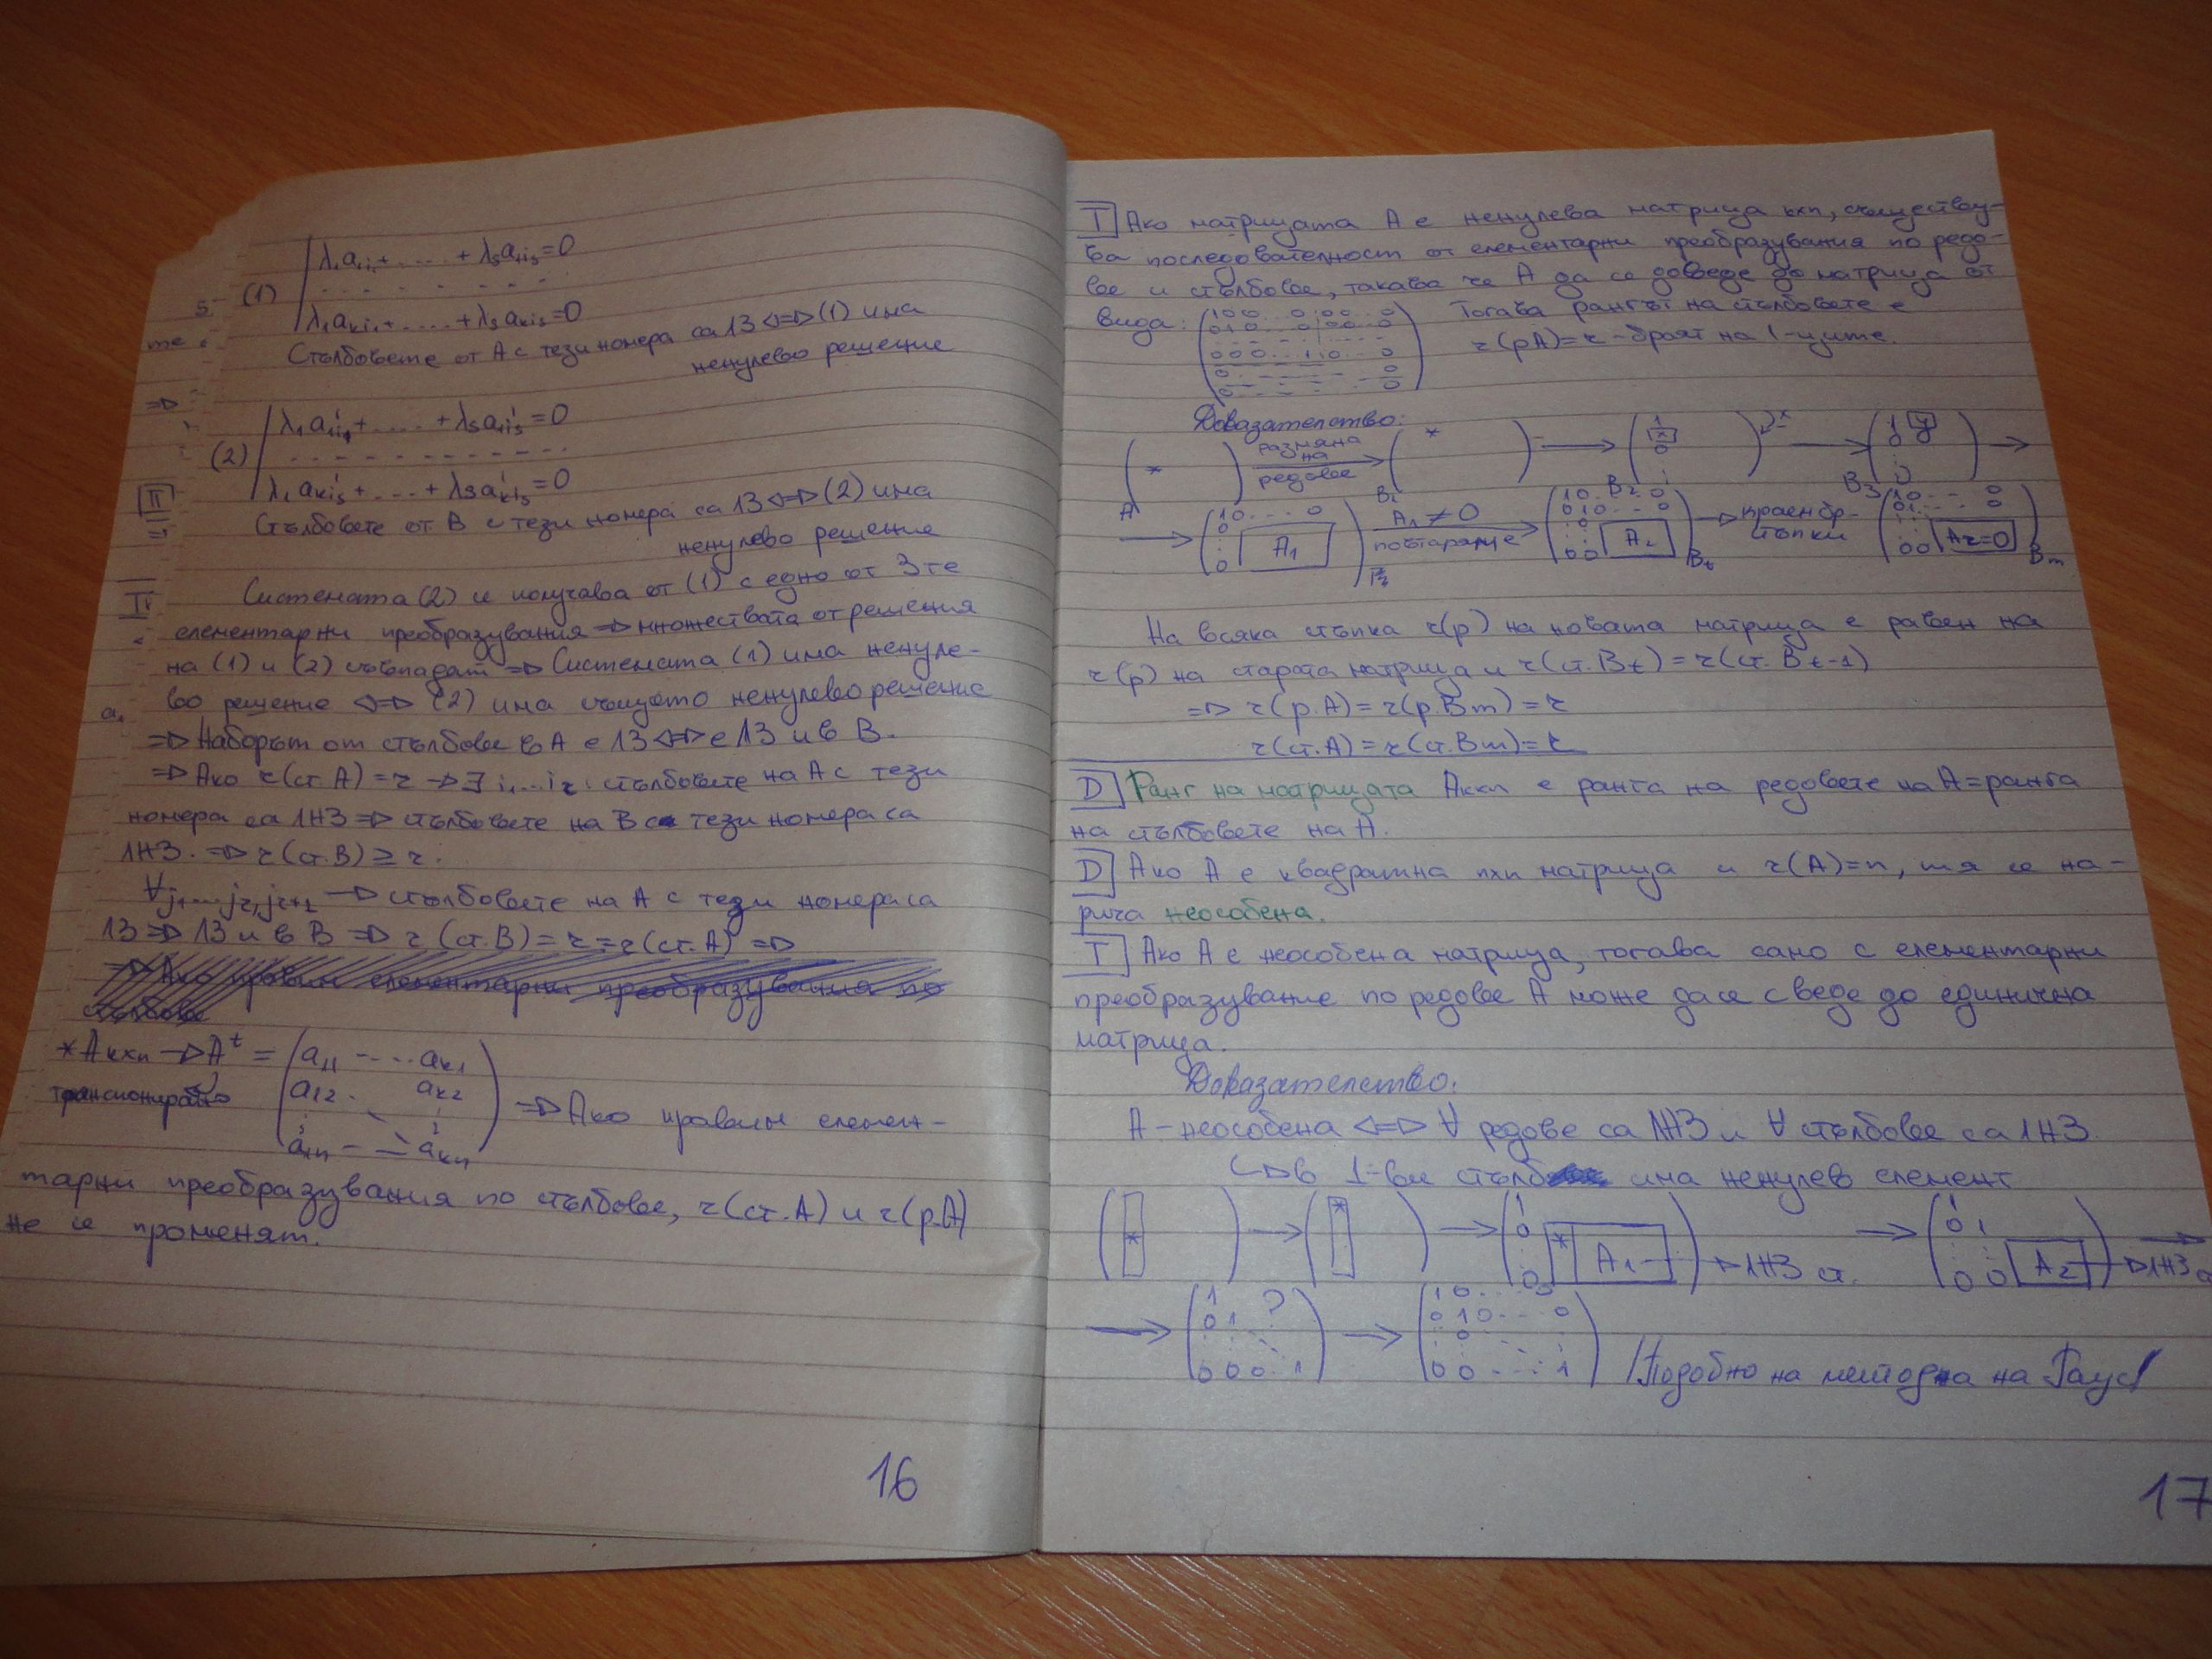 (1) | λ₁a₁ᵢ₁ + ..... + λₛa₁ᵢₛ = 0
- - - - - - - -
λ₁aₖᵢ₁ + ..... + λₛaₖᵢₛ = 0
Стълбовете от A с тези номера са ЛЗ <=> (1) има
ненулево решение
(2) | λ₁a'₁ᵢ₁ + ..... + λₛa'₁ᵢₛ = 0
- - - - - - - - - -
λ₁a'ₖᵢₛ + .... + λₛa'ₖᵢₛ = 0
Стълбовете от B с тези номера са ЛЗ <=> (2) има
ненулево решение
Системата (2) се получава от (1) с едно от 3те
елементарни преобразувания => множествата от решения
на (1) и (2) съвпадат => Системата (1) има ненуле-
во решение <=> (2) има същото ненулево решение
=> Наборът от стълбове в A е ЛЗ <=> е ЛЗ и в B.
=> Ако r(ст.A) = r -> ∃ i₁....iᵣ : стълбовете на A с тези
номера са ЛНЗ => стълбовете на B с тези номера са
ЛНЗ. => r(ст.B) ≥ r.
∀j₁....jᵣ,jᵣ₊₁ -> стълбовете на A с тези номера са
ЛЗ => ЛЗ и в B => r(ст.B) = r = r(ст.A) =>
=> Ако правим елементарни преобразувания по
стълбове
*Aₖₓₙ -> Aᵗ = (a₁₁ - ... aₖ₁
транспонирано a₁₂ . aₖ₂
a₁ₙ - - aₖₙ) => Ако правим елемен-
тарни преобразувания по стълбове, r(ст.A) и r(р.A)
не се променят.
16
T Ако матрицата A е ненулева матрица kxn, съществу-
ва последователност от елементарни преобразувания по редо-
ве и стълбове, такава че A да се доведе до матрица от
вида: (1 0 0 .. 0 | 0 0 .. 0 Тогава рангът на стълбовете е
0 1 0 .. 0 | 0 0 .. 0 r(рA) = r - броят на 1-ците.
0 0 0 ... 1 | 0 .. 0
0 - - - - - 0
0 - - - - - 0)
Доказателство:
( * ) размяна на редове -> ( * ) -> (1 x 0 ⋮ ) -> (1 y 0 ⋮ 0) ->
A B₁ B₂ B₃
-> (1 0 .... 0 0 ⋮ 0 A₁) A₁ ≠ 0 повтаряме -> (1 0 .. 0 0 1 0 .. 0 ⋮ 0 0 A₂) Bₜ -> краен бр. стъпки (1 0 .. 0 0 1 .. 0 ⋮ 0 0 Aᵣ=0) Bₘ
На всяка стъпка r(р) на новата матрица е равен на
r(р) на старата матрица и r(ст.Bₜ) = r(ст.Bₜ₋₁)
=> r(р.A) = r(р.Bₘ) = r
r(ст.A) = r(ст.Bₘ) = r
D Ранг на матрицата Aₖₓₙ е ранга на редовете на A = ранга
на стълбовете на A.
D Ако A е квадратна nxn матрица и r(A) = n, тя се на-
рича неособена.
T Ако A е неособена матрица, тогава само с елементарни
преобразувание по редове A може да се сведе до единична
матрица.
Доказателство:
A - неособена <=> ∀ редове са ЛНЗ и ∀ стълбове са ЛНЗ.
-> в 1-ви стълб има ненулев елемент
( * ) -> ( * ) -> (1 0 ⋮ 0 * A₁) -> ЛНЗ ст. -> (1 0 1 ⋮ 0 0 A₂) -> ЛНЗ
-> (1 ? 0 1 0 0 0 . 1) -> (1 0 .... 0 0 1 0 .. 0 ⋮ 0 0 0 .... 1) /Подобно на метода на Гаус/
17